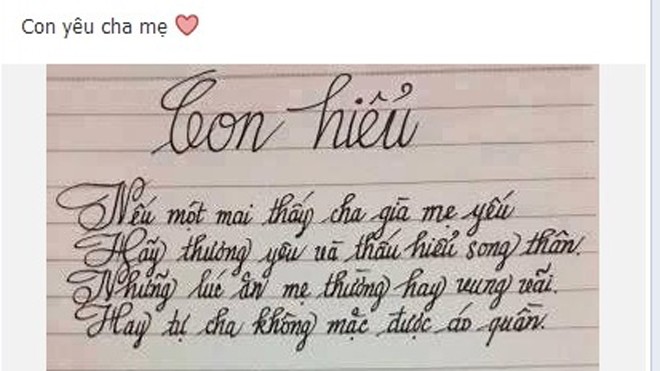 Con yêu cha mẹ ❤
Con hiểu
Nếu một mai thấy cha già mẹ yếu
Hãy thương yêu và thấu hiểu song thân.
Những lúc ăn mẹ thường hay vung vãi.
Hay tự cha không mặc được áo quần.